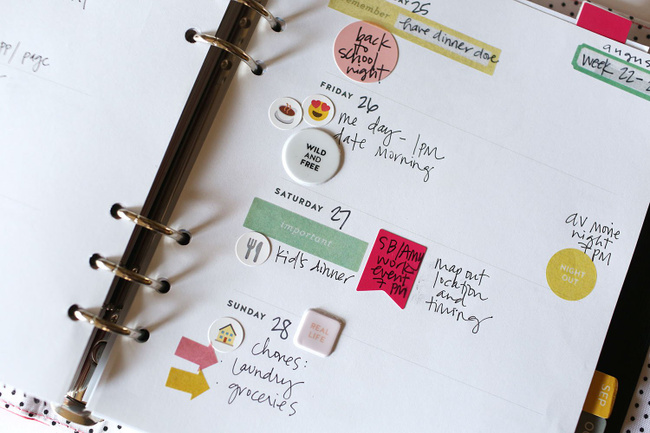 pp / page
25
remember
have dinner done
back
to
school
night!
august
week 22-2
FRIDAY 26
me day - 1PM
date morning
WILD
AND
FREE
SATURDAY 27
important
kid's dinner
SB/Amy
work
event
7PM
map out
location
and
timing
AV movie
night
7PM
NIGHT
OUT
SUNDAY 28
REAL
LIFE
chores:
laundry
groceries
SEP